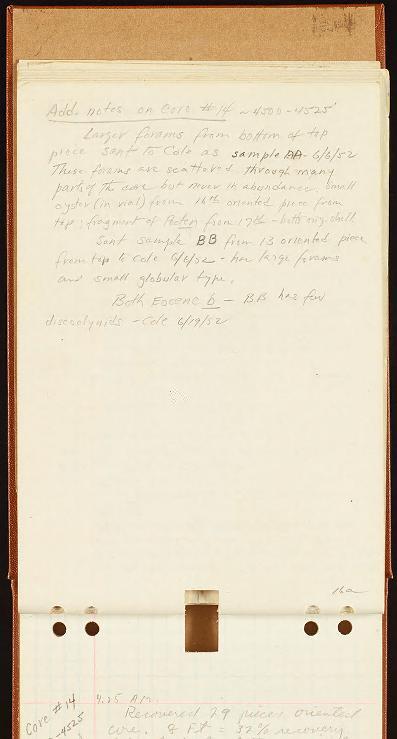 Add. notes on Core #14 ~4500-4525'
Larger forams from bottom of top
piece sent to Cole as sample AA - 6/6/52
These forams are scattered through many
parts of the core but never in abundance. Small
oyster (in vial) from 16th oriented piece from
top; fragment of Pecten from 17th - both orig. shell
Sent sample BB from 13 oriented piece
from top to Cole 6/6/52 - has large forams
and small globular type.
Both Eocene b - BB has few
discocyclinids - Cole 6/19/52
16a
4.25 A.M.
Core #14
Recovered 29 pieces oriented
-4525
core. 8 Ft = 32% recovery